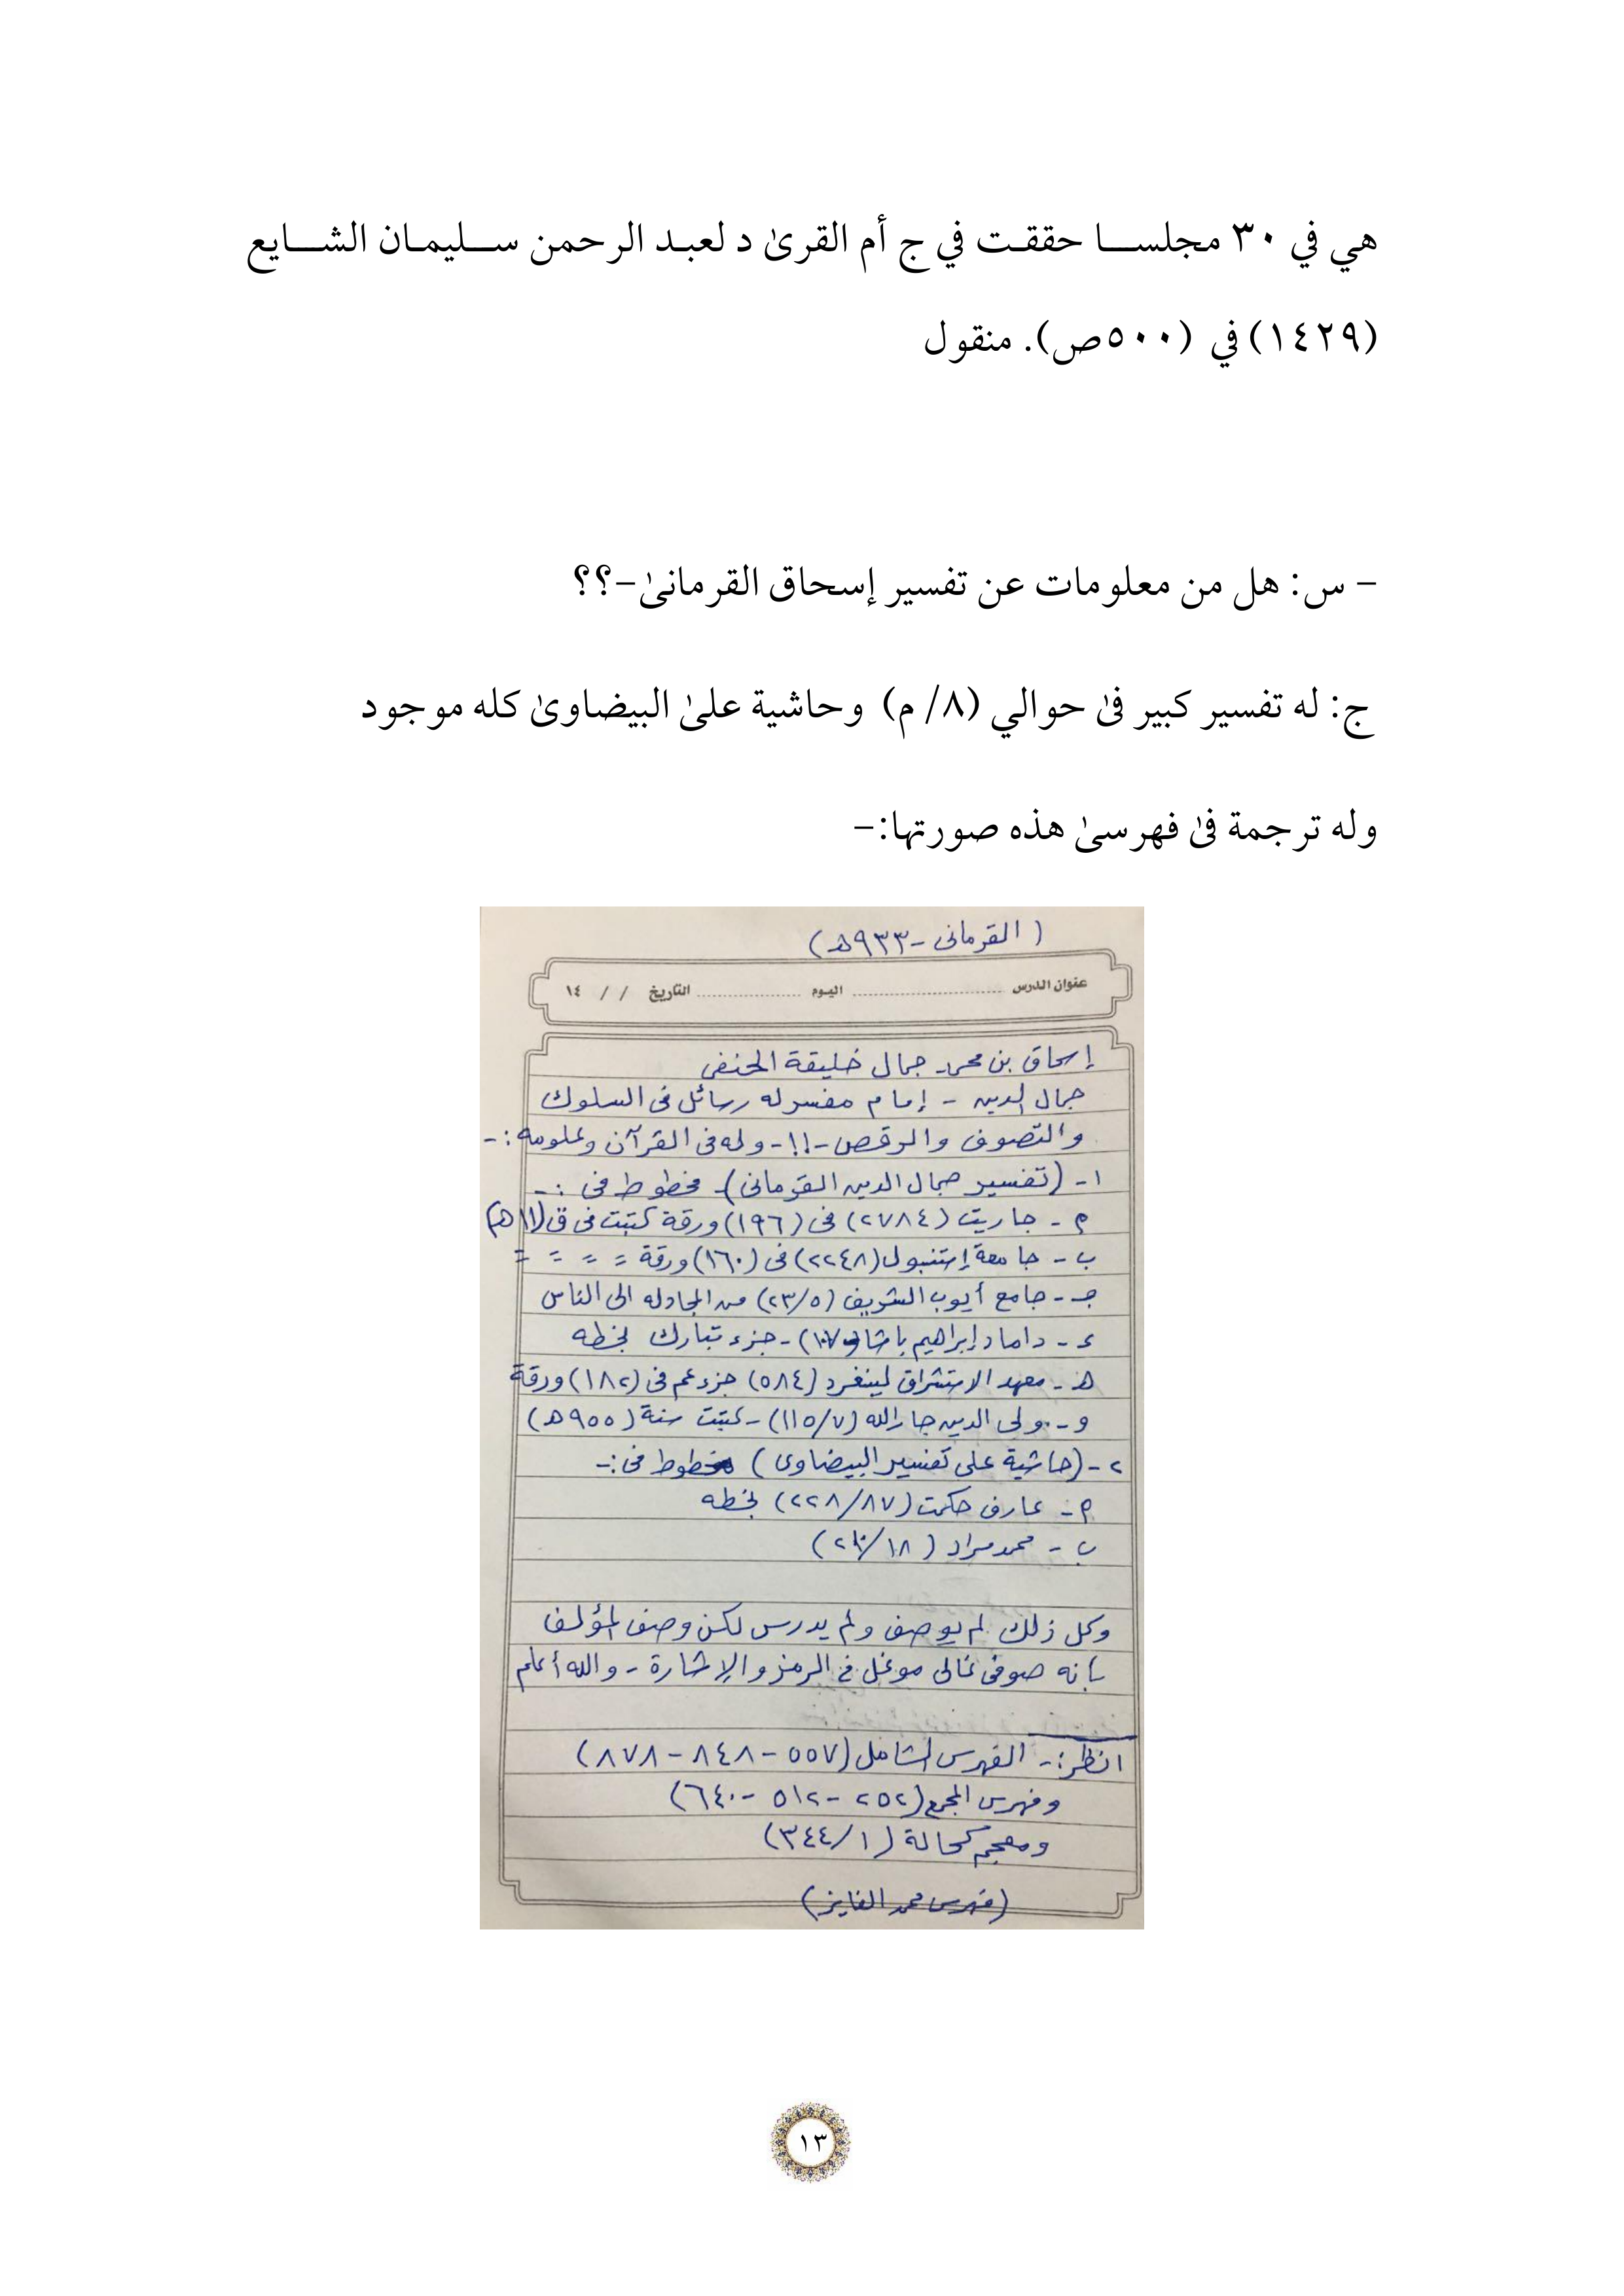 هي في ٣٠ مجلســـا حققت في ج أم القرىٰ د لعبد الرحمن ســليمان الشـــايع
(١٤٢٩) في (٥٠٠ص). منقول
- س: هل من معلومات عن تفسير إسحاق القرمانىٰ-؟؟
ج: له تفسير كبير فىٰ حوالي (٨/ م) وحاشية علىٰ البيضاوىٰ كله موجود
وله ترجمة فىٰ فهرسىٰ هذه صورتها:-
( القرمانى - ٩٣٣هـ)
عنوان الدرس ........................ اليوم ................ التاريخ / / ١٤
إسحاق بن محمد جمال خليقة الحنفى
جمال الدين - إمام مفسر له رسائل فى السلوك
والتصوف والرقص -!!- وله فى القرآن وعلومه :-
١- (تفسير جمال الدين القرمانى) - مخطوط فى :-
م - جاريت (٢٧٨٤) فى (١٩٦) ورقة كتبت فى ق (١١هـ)
ب - جامعة إستنبول (٢٢٤٨) فى (١٦٠) ورقة = = = =
جـ - جامع أيوب الشريف (٢٣/٥) من المجادله الى الناس
ء - داماد إبراهيم باشا - جزء تبارك بخطه
هـ - معهد الاستشراق لينغرد (٥٨٤) جزء عم فى (١٨٢) ورقة
و - ولى الدين جار الله (١١٥/٧) - كتبت سنة (٩٥٥هـ)
٢ - (حاشية على تفسير البيضاوى) مخطوط فى :-
م - عارف حكمت (٢٢٨/٨٧) بخطه
ب - محمد مراد
وكل ذلك لم يوصف ولم يدرس لكن وصف المؤلف
بأنه صوفى غالى موغل فى الرمز والإشارة - والله أعلم
انظر :- الفهرس الشامل (٥٥٧ - ٨٤٨ - ٨٧٨)
وفهرس المجمع (٢٥٢ - ٥١٢ - ٦٤٠)
ومعجم كحالة (٣٤٤/١)
(فهرس محمد الفايز)
١٣